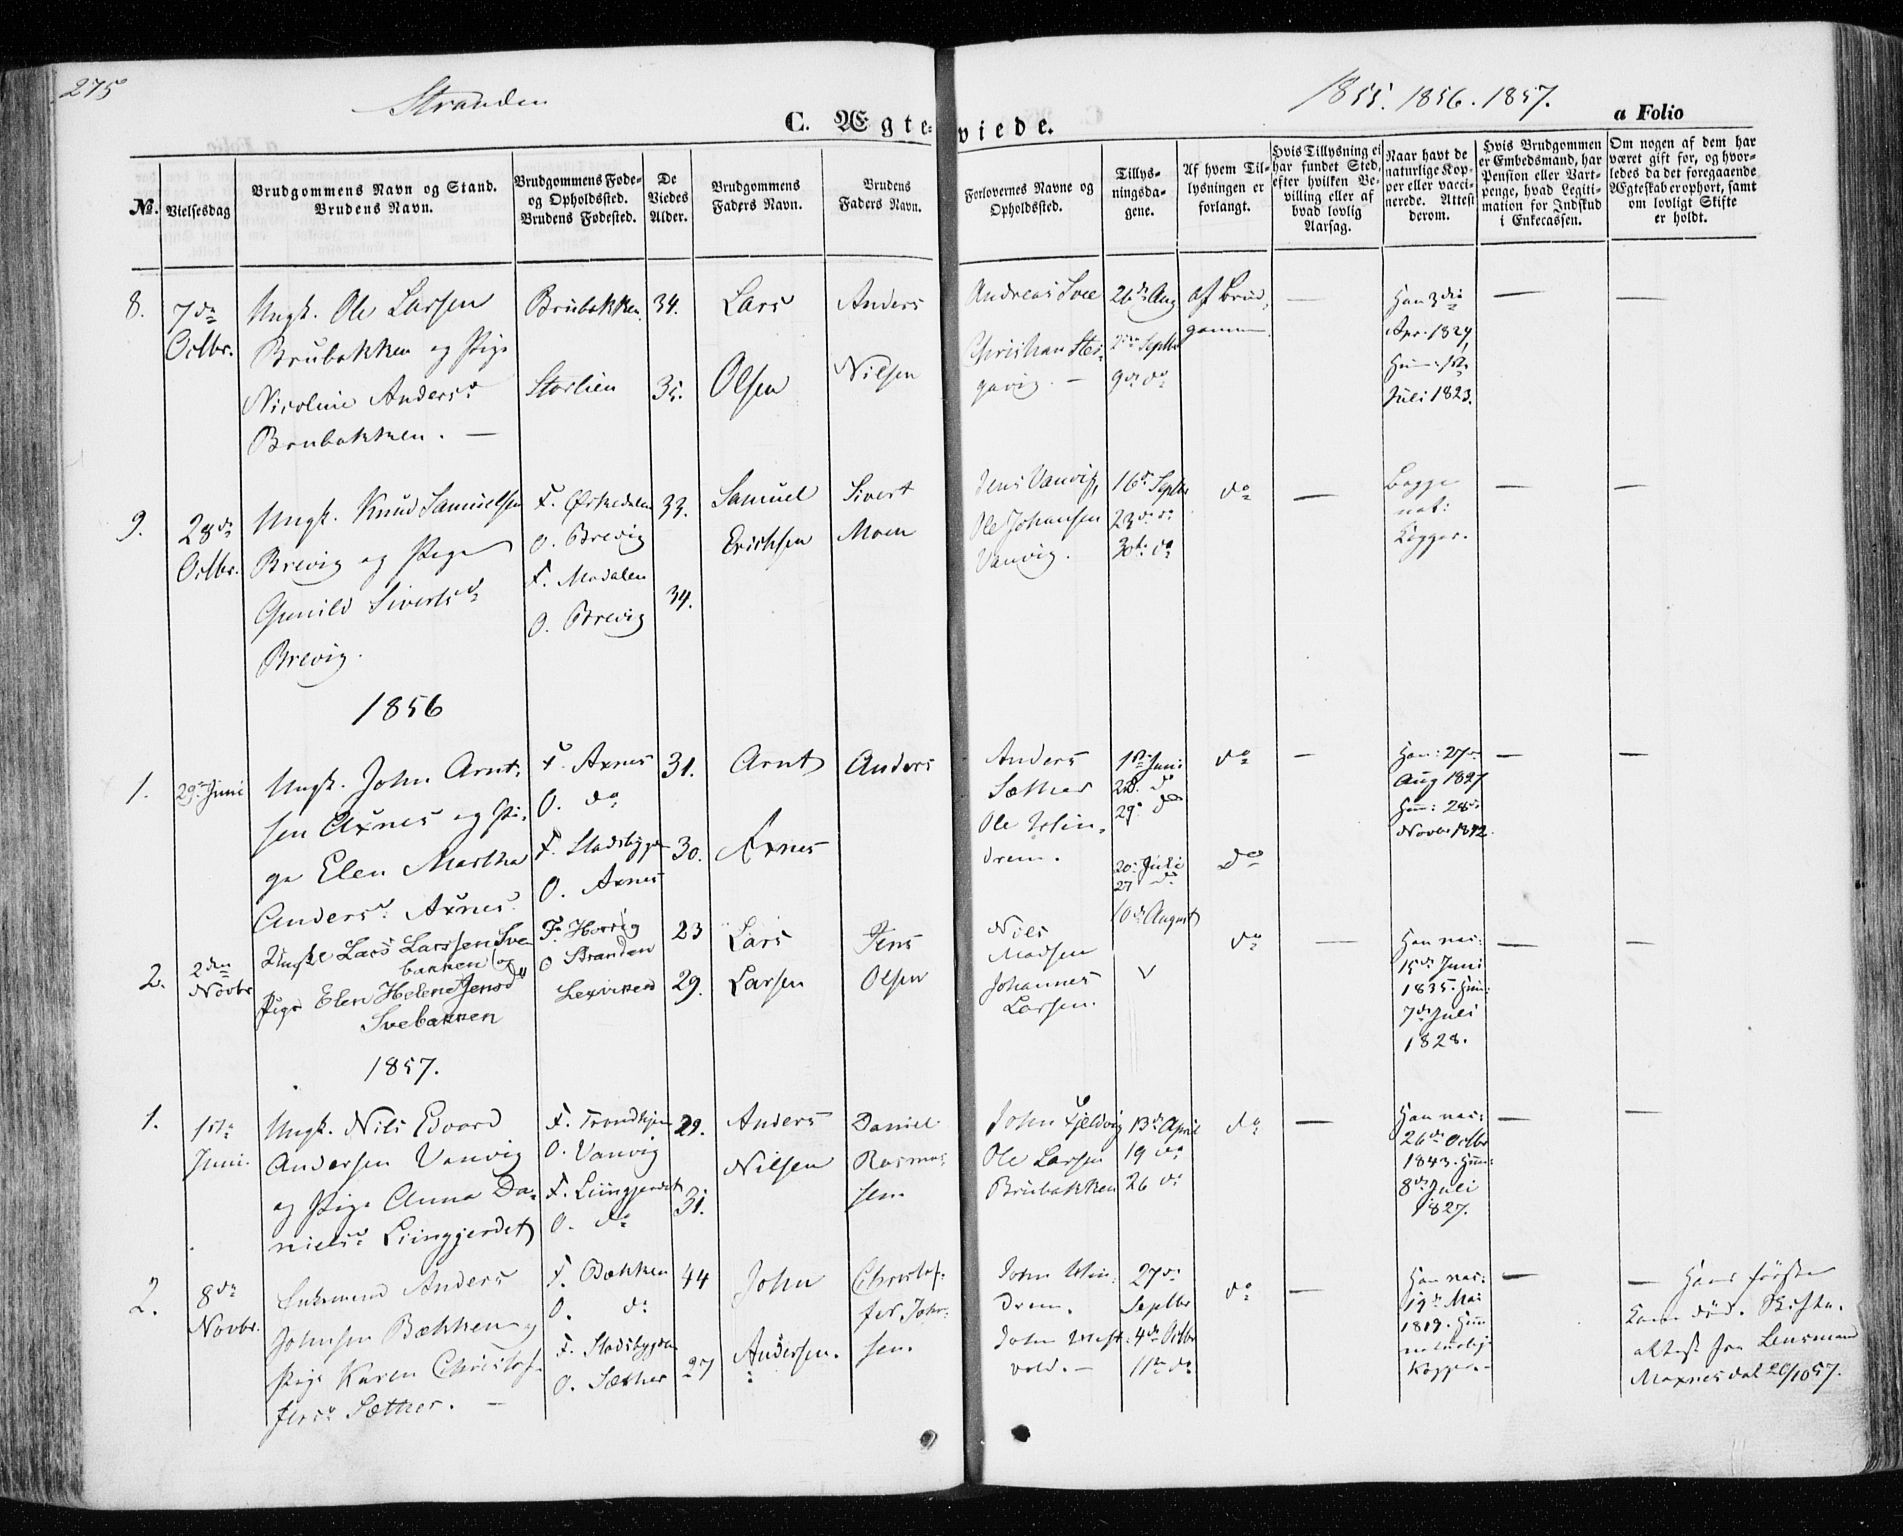 275
Stranden
1855. 1856. 1857.
C. Ægteviede.
a Folio
No.
Vielsesdag
Brudgommens Navn og Stand.
Brudens Navn.
Brudgommens Føde-
og Opholdssted.
Brudens Fødested.
De
Viedes
Alder.
Brudgommens
Faders Navn.
Brudens
Faders Navn.
Forlovernes Navne og
Opholdssted.
Tillys-
ningsda-
gene.
Af hvem Til-
lysningen er
forlangt.
Hvis Tillysning ei
har fundet Sted,
efter hvilken Be-
villing eller af
hvad lovlig
Aarsag.
Naar havt de
naturlige Kop-
per eller vacci-
nerede. Attest
derom.
Hvis Brudgommen
er Embedsmand, har
Pension eller Vart-
penge, hvad Legiti-
mation for Indskud
i Enkecassen.
Om nogen af dem har
været gift før, og hvor-
ledes da det foregaaende
Ægteskab er ophørt, samt
om lovligt Skifte
er holdt.
8.
7de
Octbr.
Ungk. Ole Larsen
Brubakken og Pige
Nicoline Andersd
Brubakken. —
Brubakken
Storlien
34.
35.
Lars
Olsen
Anders
Nilsen
Andreas Svee
Christian Ste-
gavig. —
26de Aug
2den Septbr
9de do
af Brud-
gommen
—
Han 3die
Apr. 1824,
Hun
Juli 1823.
—
—
9.
28de
Octbr.
Ungk. Knud Samuelsen
Brevig og Pige
Gunild Sivertsd
Brevig.
F. Ørkedalen
O. Brevig
F. Modalen
O. Brevig
33.
34.
Samuel
Erichsen
Sivert
Moen
Jens Vanvig,
Ole Johansen
Vanvig.
16de Septbr
23de do
30te do
do
—
Begge
nat:
Kopper.
—
—
1856
1.
29de Juni
Ungk. John Arnt-
sen Axnes og Pi-
ge Elen Martha
Andersd. Axnes.
F. Axnes
O. do
F. Stadsbygden
O. Axnes
31.
30.
Arnt
Axnes
Anders
Anders
Sæther
Ole Win-
drem.
1ste Juni
22d. d
29de do
20. Juli
27 do
10de August
do
do
—
Han: 27de
Aug 1827
Hun: 28de
Novbr 1842.
—
—
2.
2den
Novbr
Ungke Lars Larssen Sve-
bakken og
Pige Elen Helene Jensd
Svebakken
F. Horvig
O Stranden
Lexviken
23
29.
Lars
Larsen
Jens
Olsen
Nils
Madsen
Johannes
Larsen.
do
—
Han vac:
15de Juni
1835. Hun:
7de Juli
1828.
—
—
1857.
1.
1ste
Juni.
Ungk. Nils Edvard
Andersen Vanvig
og Pige Anna Da-
nielsd Liingjerdet
F. Trondhjem
O. Vanvig
F. Liingjerdet
O. do
29.
31.
Anders
Nilsen
Daniel
Rasmus-
sen.
John Fjeldvig
Ole Larsen
Brubakken
13de April
19 do
26 do
do
—
Han vac:
26de Octbr
1843. Hun:
8de Juli
1827.
—
—
2.
8de
Novbr.
Enkemand Anders
Johnsen Bækken og
Pige Karen Christof-
fersd Sæther. —
F. Bækken
O. do
F. Stadsbygden
O. Sæther
44
27
John
Andersen.
Christof-
fer John-
sen.
John Win-
drem.
John West-
vold. —
27de
Septbr
4de Octbr
11te do
do
—
Han vac:
19de Mai
1819. Hun
naturlige
Kopper. —
—
— Hans første
Kone død. Skifte-
attest fra Lensmand
Maxnesdal 20/10 57.